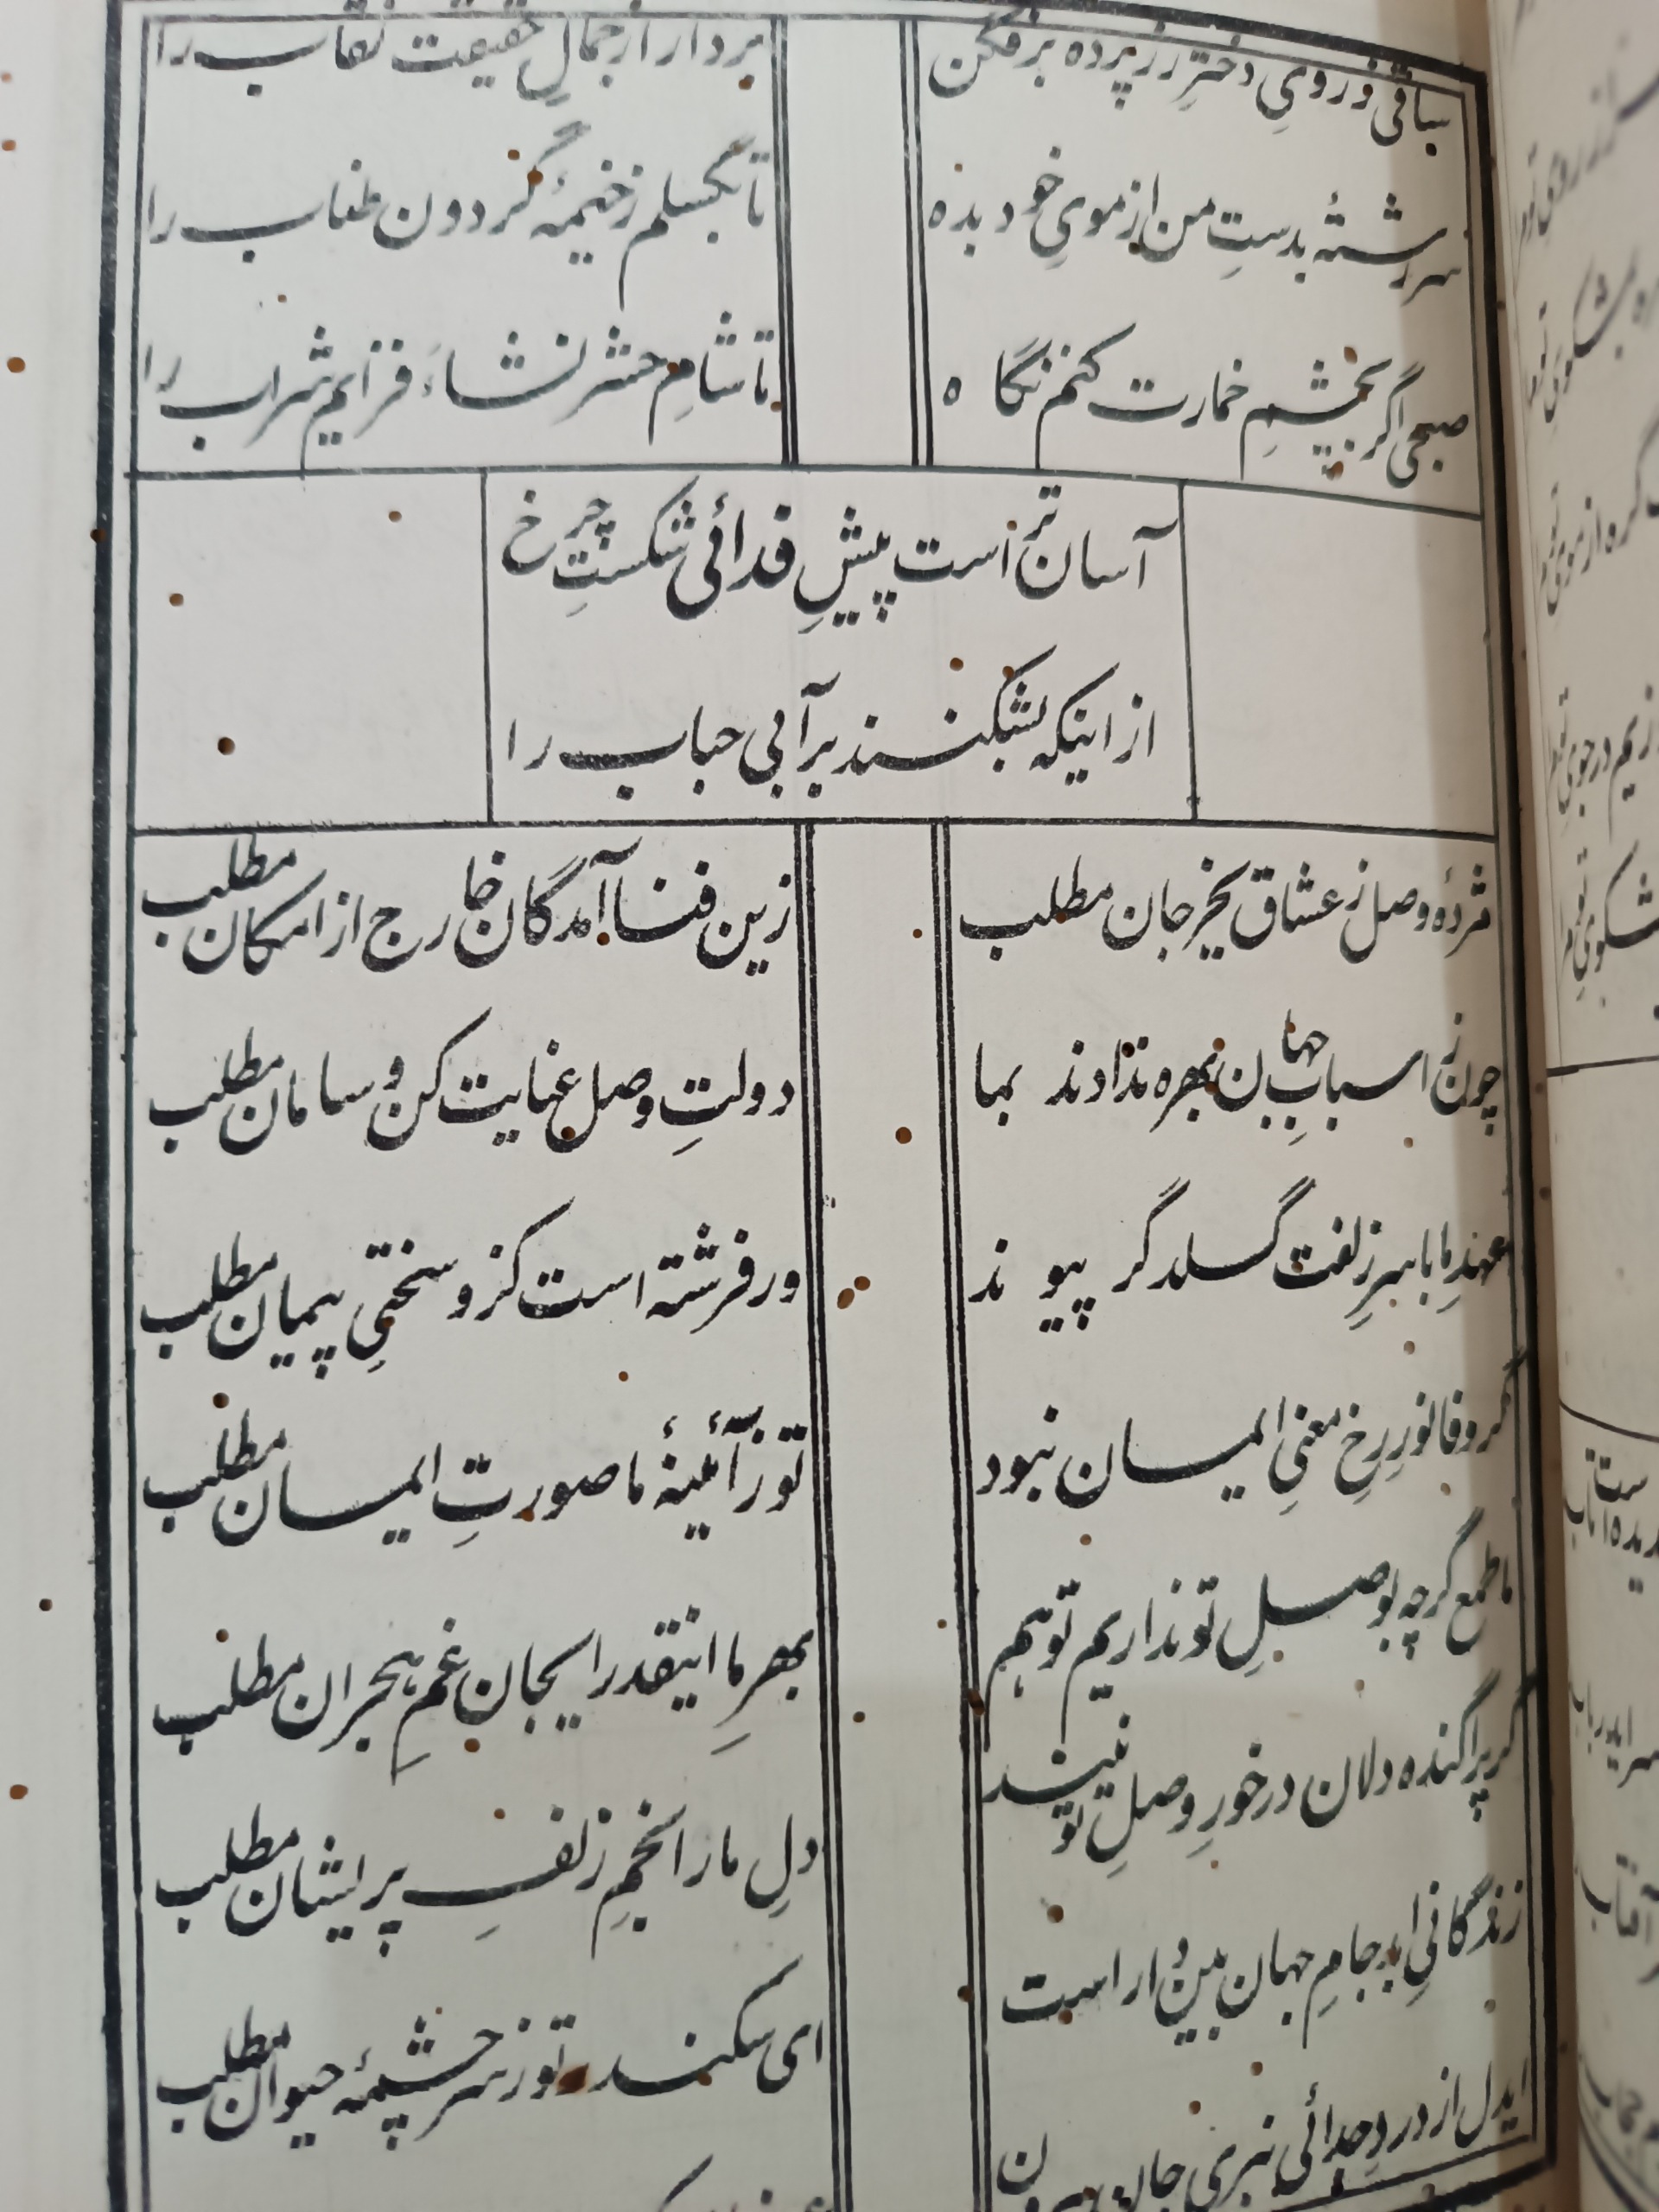 ساقی ز رویِ دخترِ رز پرده برفکن
بردار از جمالِ حقیقت نقاب را
سررشتهٔ بدستِ من از مویِ خود بده
تا بگسلم ز خیمهٔ گردون طناب را
صبحی اگر بچشمِ خمارت کنم نگاه
تا شامِ حشر نشاءَ فزایم شراب را
آسان تر است پیشِ فدائی شکستِ چرخ
از اینکه بشکنند بر آبی حباب را
مژدهٔ وصل ز عشاق بجز جان مطلب
زین فنا آمدگان خارج از امکان مطلب
چون ز اسبابِ جهان بهره ندادند بما
دولتِ وصل عنایت کن و سامان مطلب
عهدِ ما با سرِ زلفت گسلد گر پیوند
ور فرشته است کزو سختیِ پیمان مطلب
گر وفا نورِ رخِ معنیِ ایمان نبود
تو ز آئینهٔ ما صورتِ ایمان مطلب
ما طمع گرچه بوصلِ تو نداریم تو هم
بهرِ ما اینقدر ایجان غمِ هجران مطلب
گر پراکنده دلان درخورِ وصلِ تو نیند
دلِ ما را بخمِ زلفِ پریشان مطلب
زندگانیِ ابد جامِ جهان بینِ دار است
ای سکندر تو ز سرچشمهٔ حیوان مطلب
ایدل از دردِ جدائی نبری جان